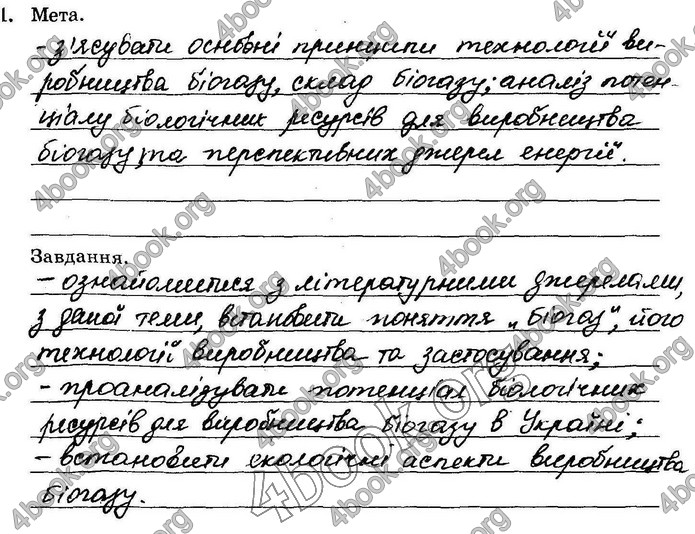 1. Мета.
- з'ясувати основні принципи технології ви-
робництва біогазу, склад біогазу; аналіз потен-
ціалу біологічних ресурсів для виробництва
біогазу та перспективних джерел енергії.
Завдання.
- ознайомитися з літературними джерелами,
з даної теми, встановити поняття „Біогаз", його
технології виробництва та застосування;
- проаналізувати потенціал біологічних
ресурсів для виробництва біогазу в Україні;
- встановити екологічні аспекти виробництва
біогазу.
4book.org